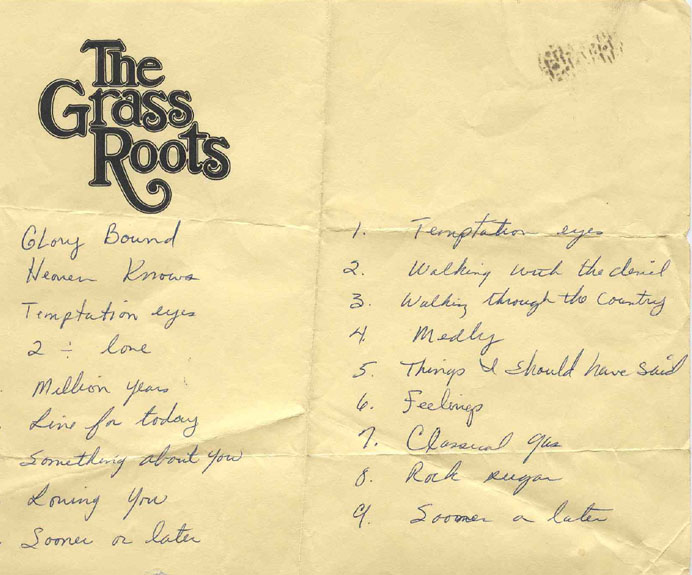 The
Grass
Roots
Glory Bound
Heaven Knows
Temptation eyes
2 ÷ love
Million years
Live for today
Something about You
Loving You
Sooner or later
1. Temptation eyes
2. Walking with the devil
3. Walking through the Country
4 Medly
5. Things I should have said
6. Feelings
7. Classical gas
8. Rock sugar
9. Sooner or later